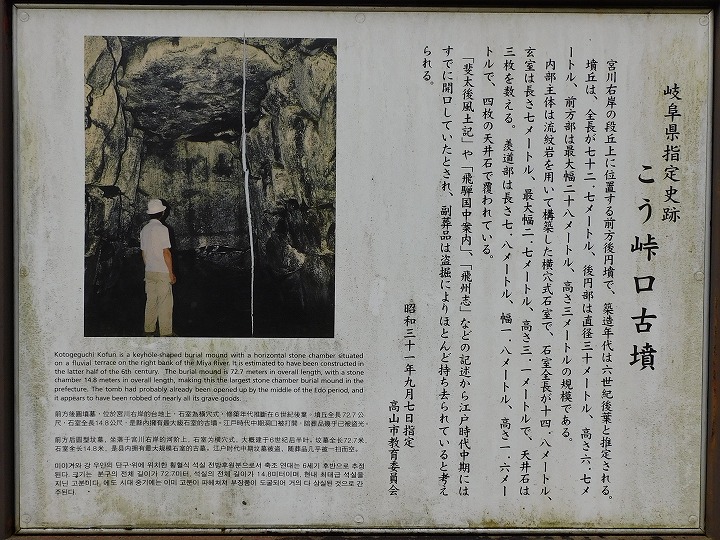 岐阜県指定史跡
こう峠口古墳
宮川右岸の段丘上に位置する前方後円墳で、築造年代は六世紀後葉と推定される。
墳丘は、全長が七十二.七メートル、後円部は直径三十メートル、高さ六.七メ
ートル、前方部は最大幅二十八メートル、高さ三メートルの規模である。
内部主体は流紋岩を用いて構築した横穴式石室で、石室全長が十四.八メートル、
玄室は長さ七メートル、最大幅二.七メートル、高さ三.一メートルで、天井石は
三枚を数える。羨道部は長さ七.八メートル、幅一.八メートル、高さ二.六メー
トルで、四枚の天井石で覆われている。
「斐太後風土記」や「飛騨国中案内」、「飛州志」などの記述から江戸時代中期には
すでに開口していたとされ、副葬品は盗掘によりほとんど持ち去られていると考え
られる。
昭和三十一年九月七日指定
高山市教育委員会
Kotogeguchi Kofun is a keyhole-shaped burial mound with a horizontal stone chamber situated
on a fluvial terrace on the right bank of the Miya River. It is estimated to have been constructed in
the latter half of the 6th century. The burial mound is 72.7 meters in overall length, with a stone
chamber 14.8 meters in overall length, making this the largest stone chamber burial mound in the
prefecture. The tomb had probably already been opened up by the middle of the Edo period, and
it appears to have been robbed of nearly all its grave goods.
前方後圓墳墓，位於宮川右岸的台地上，石室為橫穴式，修築年代推斷在6世紀後葉。墳丘全長72.7公
尺，石室全長14.8公尺，是縣內擁有最大級石室的古墳。江戶時代中期洞口被打開，陪葬品幾乎已被盜光。
前方后圆型坟墓，坐落于宫川右岸的河阶上，石室为横穴式，大概建于6世纪后半叶。坟墓全长72.7米，
石室全长14.8米，是县内拥有最大规模石室的古墓。江户时代中期坟墓被盗，随葬品几乎被一扫而空。
미야가와 강 우안의 단구 위에 위치한 횡혈식 석실 전방후원분으로서 축조 연대는 6세기 후반으로 추정
된다. 크기는 분구의 전체 길이가 72.7미터, 석실의 전체 길이가 14.8미터이며, 현내 최대급 석실을
지닌 고분이다. 에도 시대 중기에는 이미 고분이 파헤쳐져 부장품이 도굴되어 거의 다 상실된 것으로 간
주된다.